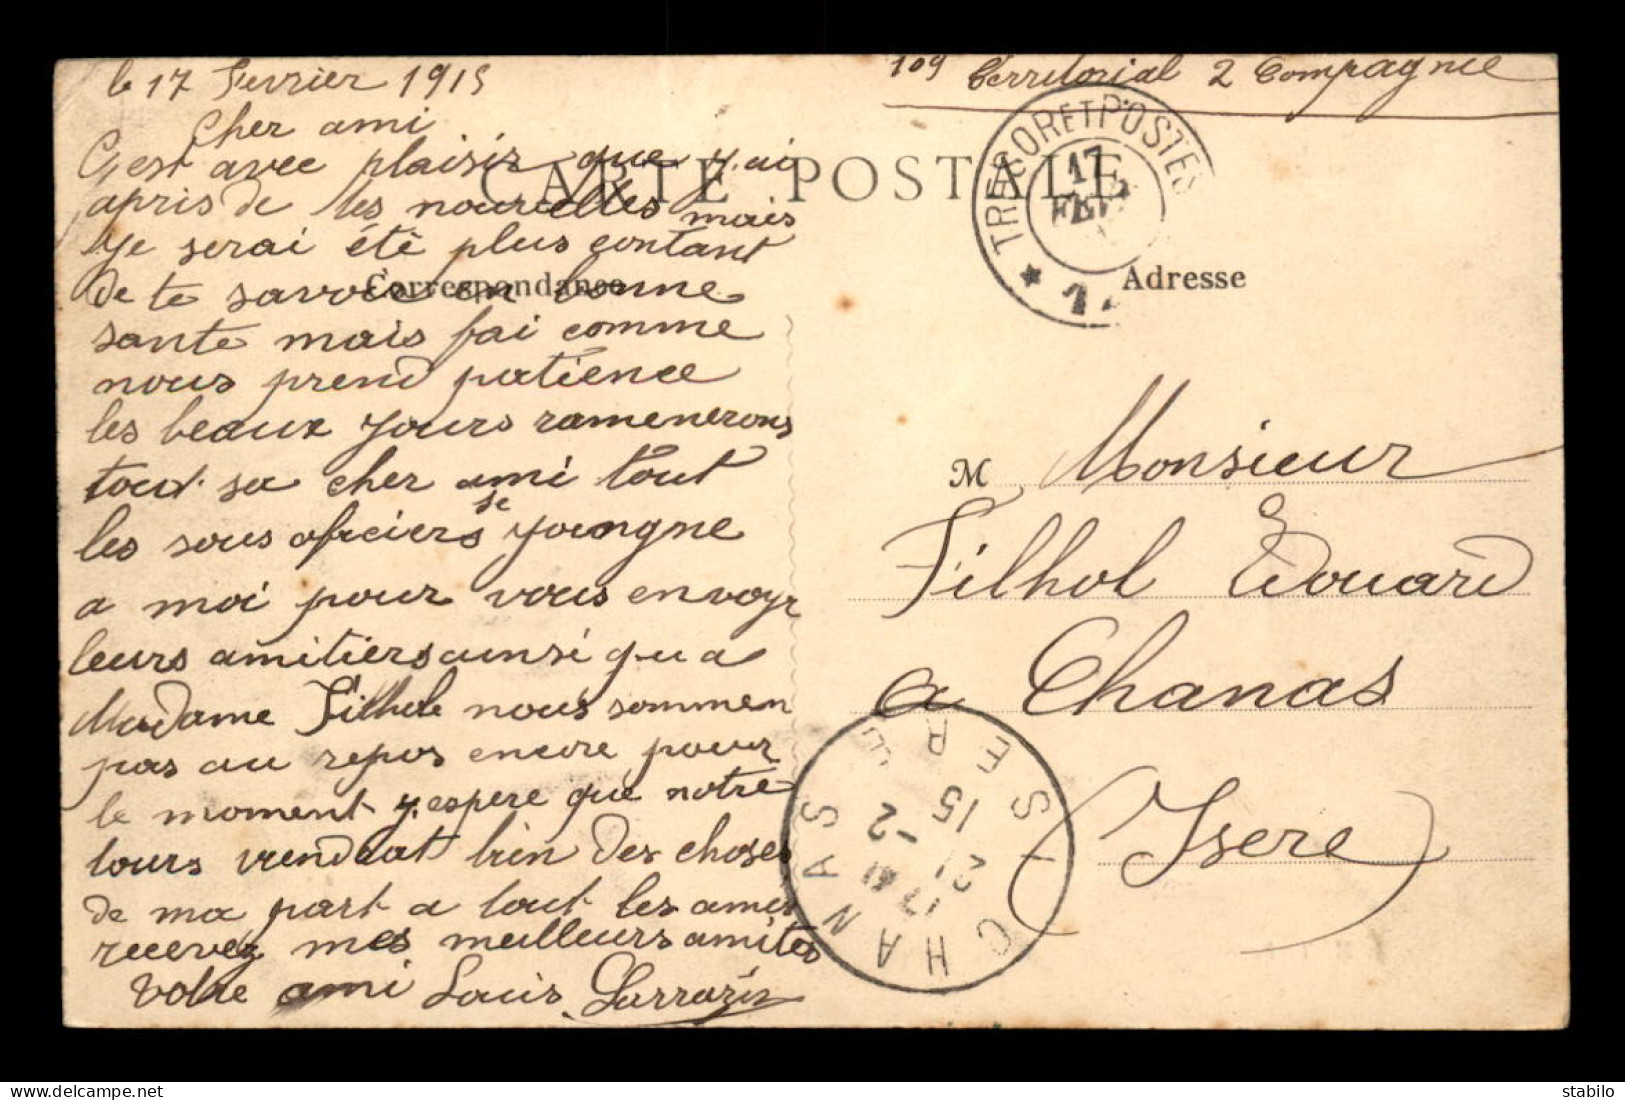 le 17 Fevrier 1915
Cher ami
C'est avec plaisir que j'ai
apris de tes nouvelles mais
je serai été plus contant
de te savoir en bonne
sante mais fai comme
nous prend patience
les beaux jours ramenerons
tout sa cher ami tout
les sous oficiers se joingne
a moi pour vous envoyr
leurs amitiers ainsi qu a
Madame Filhole nous sommen
pas au repos encore pour
le moment j'espere que notre
tours viendrat bien des choses
de ma part a tout les amis
recevez mes meilleurs amites
Votre ami Louis
109 Territorial 2 Compagnie
CARTE POSTALE
Correspondance
Adresse
TRESOR ET POSTES
17
FEVR
M Monsieur
Filhol Edouard
a Chanas
(Isere)
CHANAS
ISERE
17
21
-2
15
stabilo
www.delcampe.net